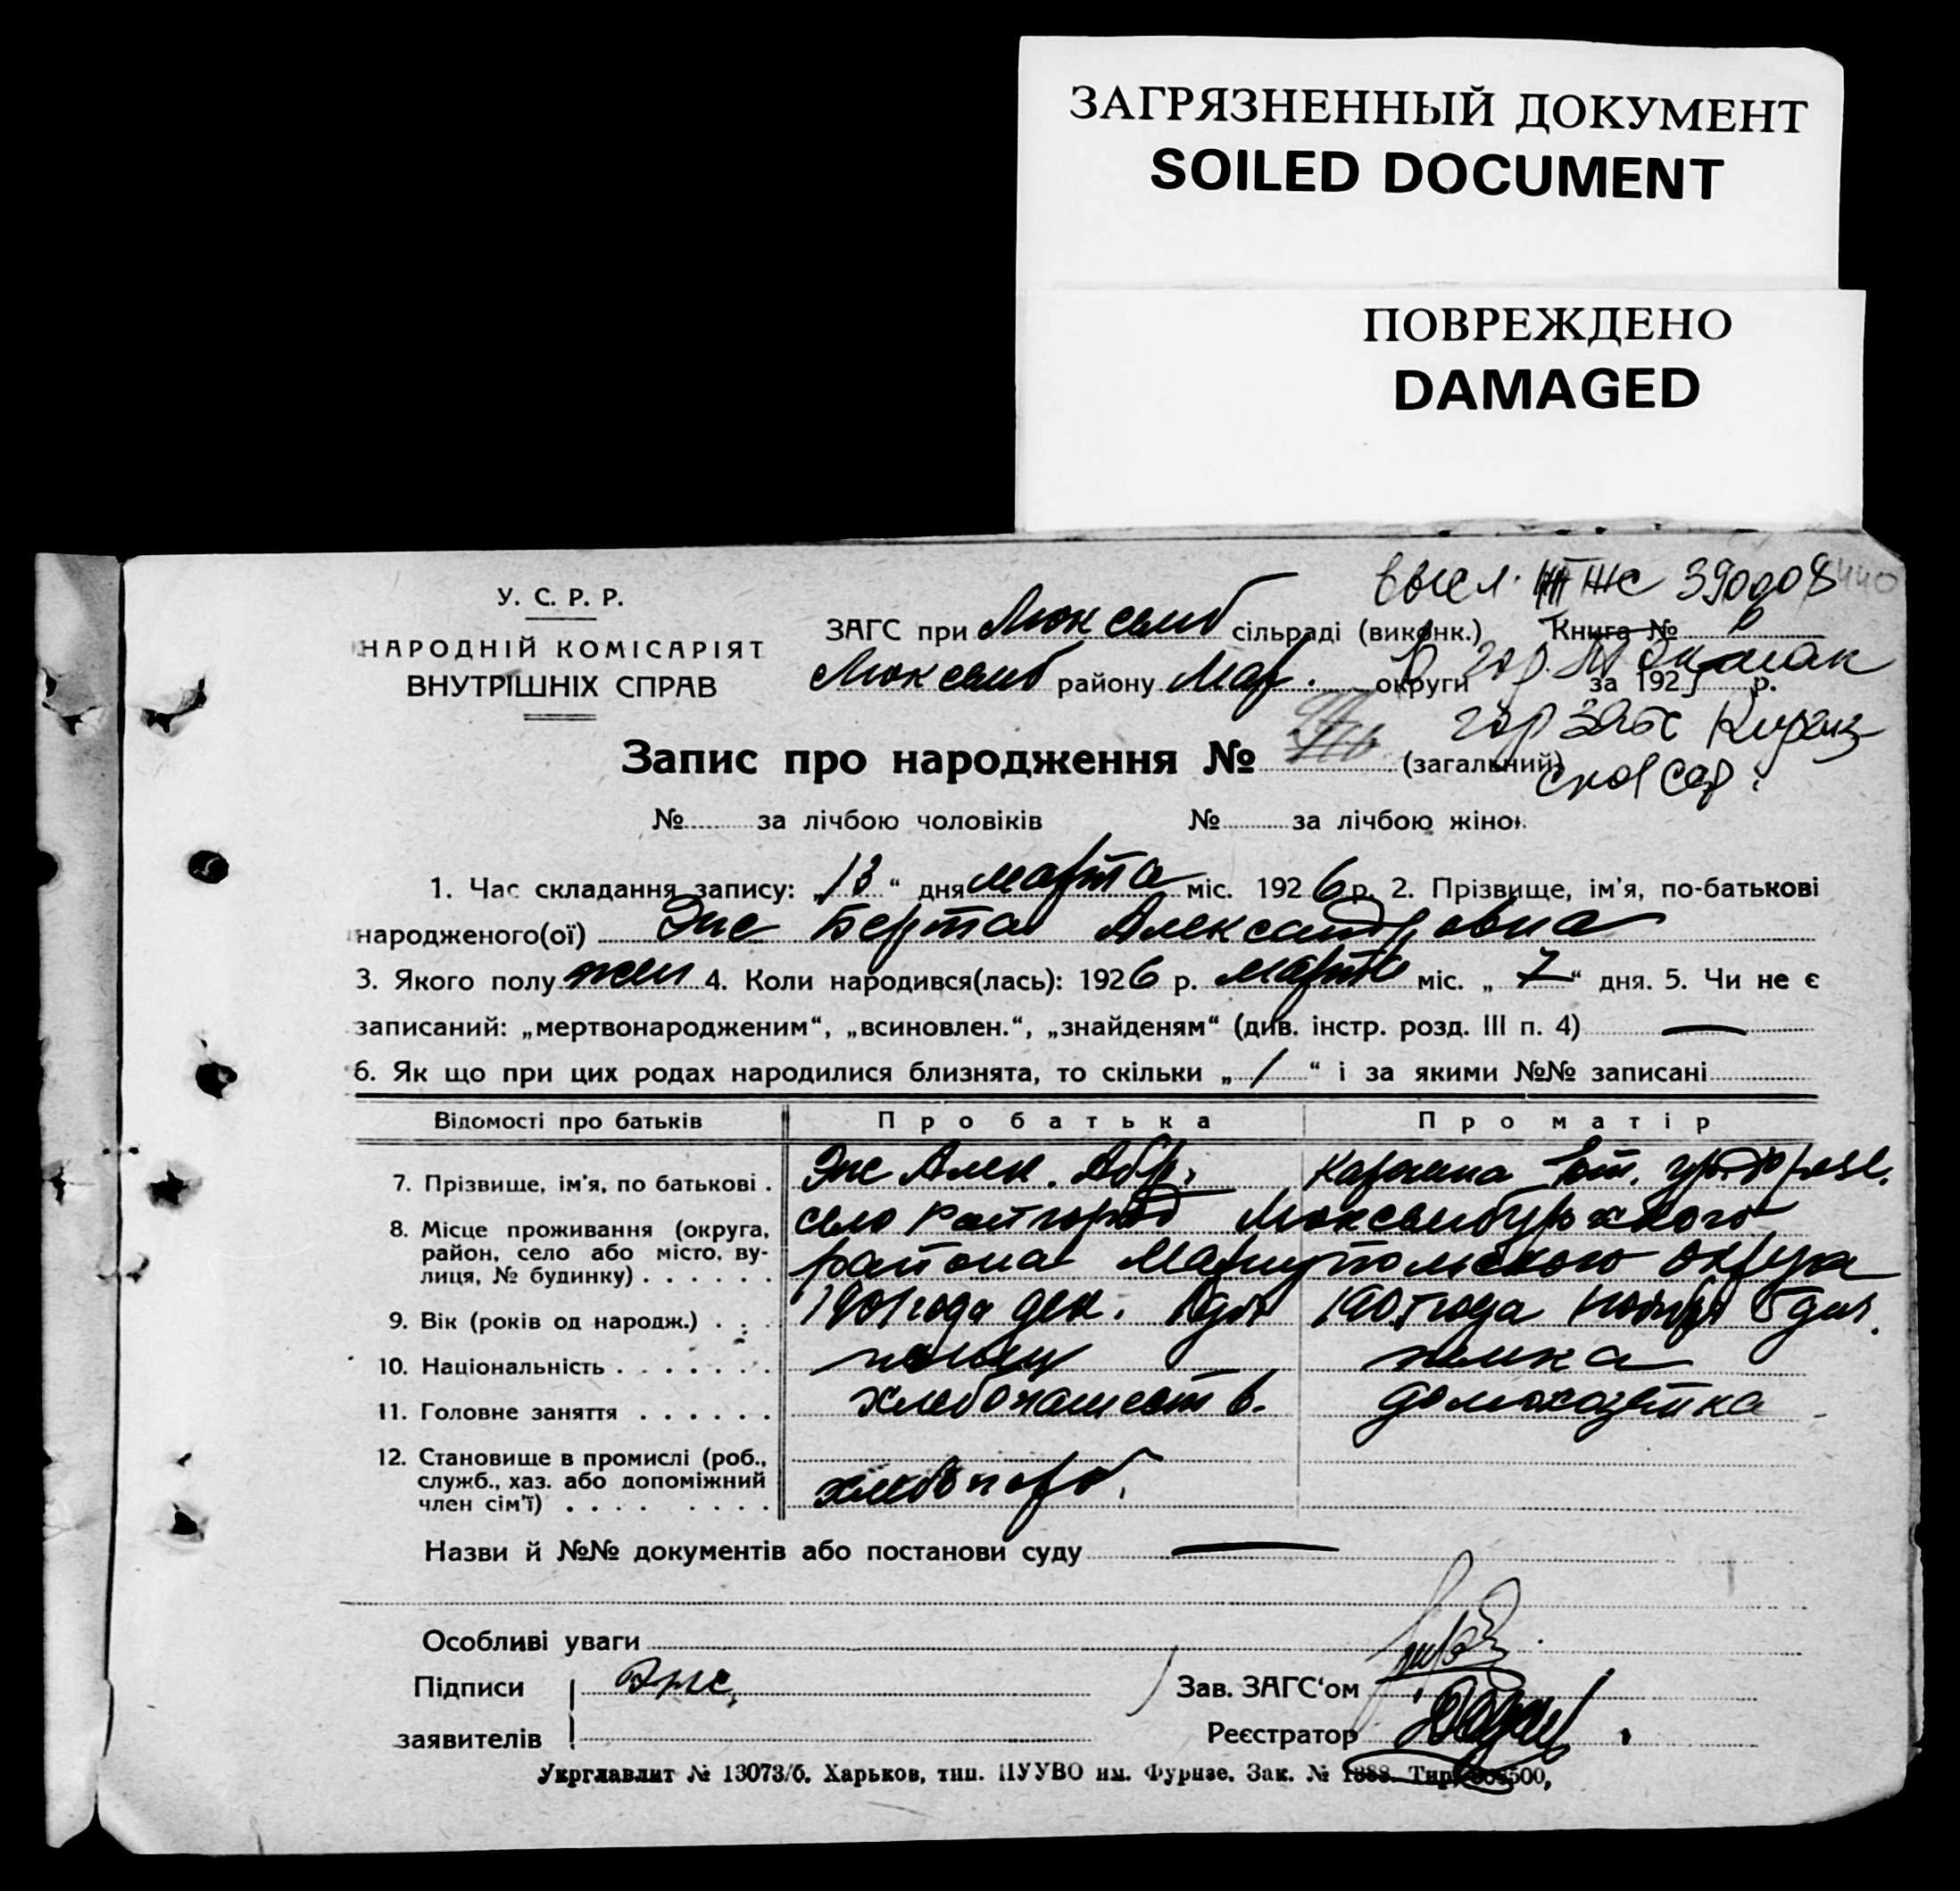 ЗАГРЯЗНЕННЫЙ ДОКУМЕНТ
SOILED DOCUMENT
ПОВРЕЖДЕНО
DAMAGED
У. С. Р. Р.
НАРОДНІЙ КОМІСАРІЯТ
ВНУТРІШНІХ СПРАВ
390908
ЗАГС при Люксемб сільраді (виконк.) Книга №
Люксемб району Мар. округи за 192 р.
гор. Токмак
гор загс
Запис про народження № (загальний)
№ за лічбою чоловіків № за лічбою жінок
1. Час складання запису: „13“ дня марта міс. 1926 р. 2. Прізвище, ім’я, по-батькові
народженого(ої) Эпс Берта Александровна
3. Якого полу жен 4. Коли народився(лась): 1926 р. марта міс. „7“ дня. 5. Чи не є
записаний: „мертвонародженим“, „всиновлен.“, „знайденям“ (див. інстр. розд. III п. 4) —
6. Як що при цих родах народилися близнята, то скільки „/“ і за якими №№ записані
Відомості про батьків Про батька Про матір
7. Прізвище, ім’я, по батькові . Эпс Алек. Абр.
8. Місце проживання (округа, район, село або місто, вулиця, № будинку) . . . . . . село Райгород Люксембургского
района Мариупольского округа
9. Вік (років од народж.) . . . 1901 года дек. дня 1905 года ноября 5 дня.
10. Національність . . . . . . . немец немка
11. Головне заняття . . . . . . хлебопашеств. домохозяйка
12. Становище в промислі (роб., служб., хаз. або допоміжний член сім’ї) . . . . . . . .
Назви й №№ документів або постанови суду —
Особливі уваги
Підписи Эпс Зав. ЗАГС‘ом
заявителів Реєстратор
Укрглавлит № 13073/б. Харьков, тип. ПУУВО им. Фрунзе. Зак. № 1388.